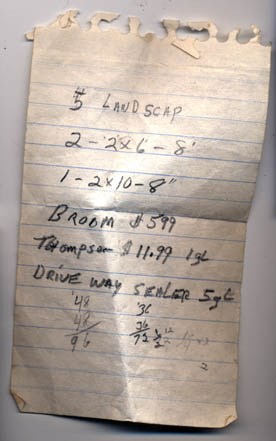 #5 LANDSCAP
2 - 2x6 - 8'
1 - 2x10 - 8"
BROOM $599
Thompson $11.99 1gl
DRIVE WAY SEALER 5gl
48 36
48 36
96 72
2